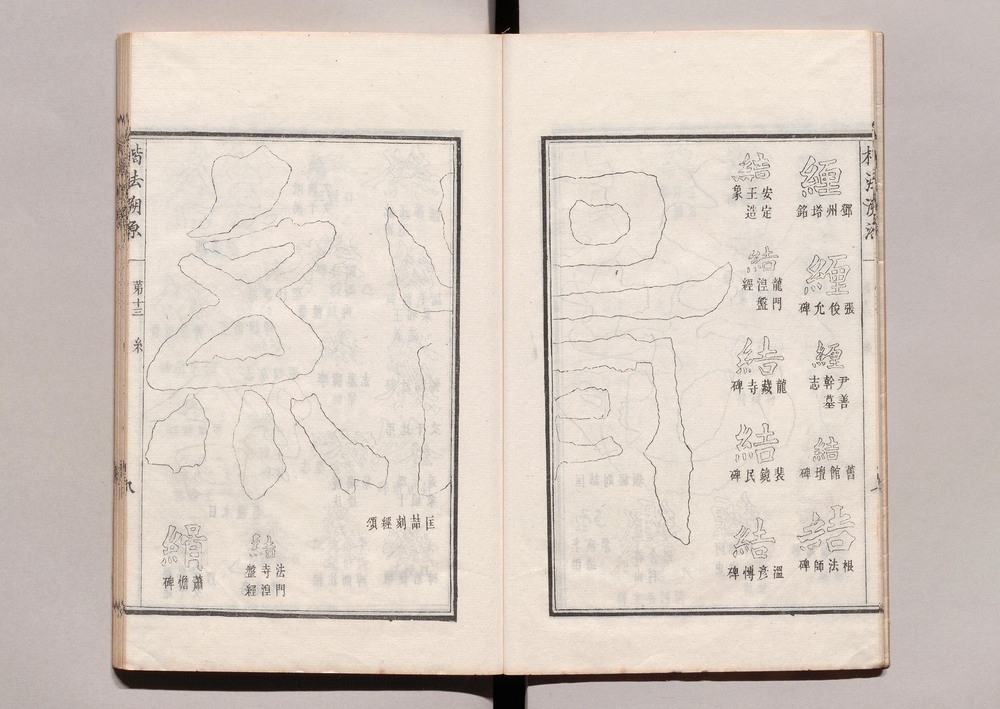 楷法溯源
緾
鄧州塔銘
緾
張俊允碑
緾
尹善
幹墓
志
結
舊館壇碑
結
根法師碑
結
安定
王造
象
結
龍門
湼盤
經
結
龍藏寺碑
結
裴鏡民碑
結
溫彥博碑
結
匡喆刻經頌
結
法門
寺湼
盤經
絹
蕭憺碑
楷法溯源
第十三
糸